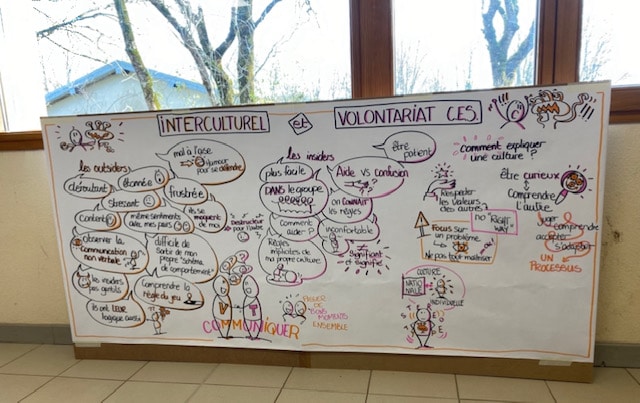 INTERCULTUREL et VOLONTARIAT CES.
les outsiders
mal à l'aise
Humour
pour se défendre
déroutant
étonnée
frustrée
stressant
Content
même sentiments
avec mes pairs
ils se
moquent
de moi
Déstructeur
pour l'autre
observer la
communication
non verbale
difficile de
sortir de mon
propre "Schéma
de comportement"
les modes
pas gentils
Comprendre la
règle du jeu
ils ont LEUR
logique aussi
les insiders
plus facile
DANS le groupe
Aide vs Confusion
on CONNAIT
les règles
Comment
aider?
inconfortable
Règles
implicites de
ma propre culture
Signifiant
et signifié
COMMUNIQUER
PASSER DE
BONS MOMENTS
ENSEMBLE
être
patient
Respecter
les valeurs
des autres
Focus sur
un problème
Ne pas tout maîtriser
NO "RIGHT
WAY"
CULTURE
NATIONALE
INDIVIDUELLE
Comment expliquer
une culture?
être curieux
Comprendre
l'autre
Juger
comprendre
accepter
s'adapter
UN
PROCESSUS